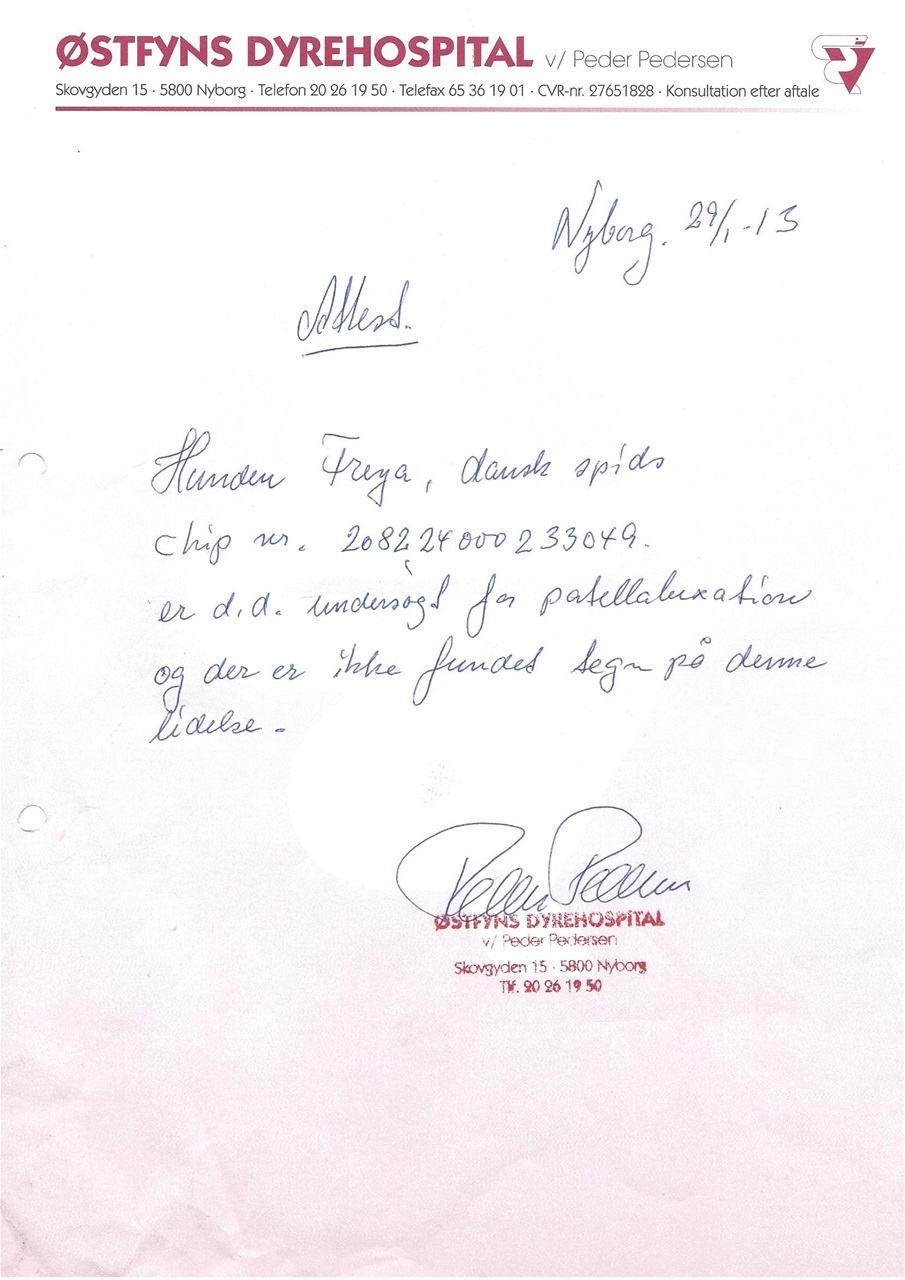 ØSTFYNS DYREHOSPITAL v/ Peder Pedersen
Skovgyden 15 · 5800 Nyborg · Telefon 20 26 19 50 · Telefax 65 36 19 01 · CVR-nr. 27651828 · Konsultation efter aftale
Nyborg. 29/1-13
Attest.
Hunden Freya, dansk spids
chip nr. 208224000233049.
er d.d. undersøgt for patellaluxation
og der er ikke fundet tegn på denne
lidelse.
Peder Pedersen
ØSTFYNS DYREHOSPITAL
v/ Peder Pedersen
Skovgyden 15 · 5800 Nyborg
Tlf. 20 26 19 50